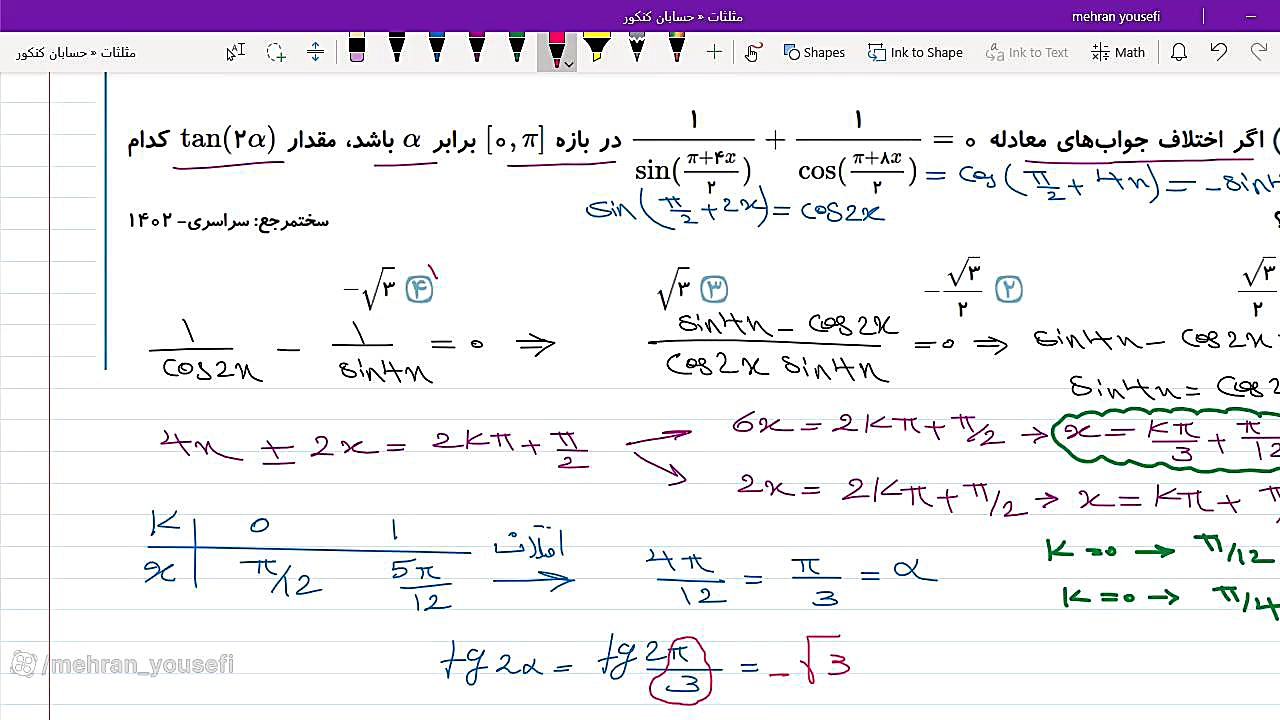 مثلثات « حسابان کنکور
mehran yousefi
مثلثات « حسابان کنکور
Shapes Ink to Shape Ink to Text Math
) اگر اختلاف جواب‌های معادله ۰ = ۱/cos((π+۸x)/۲) + ۱/sin((π+۴x)/۲) در بازه [۰,π] برابر α باشد، مقدار tan(۲α) کدام
= cos(π/2 + 4x) = -sin4
sin(π/2 + 2x) = cos2x
؟
سختمرجع: سراسری- ۱۴۰۲
√۳/۲
-√۳/۲ ۲
√۳ ۳
-√۳ ۴
1/cos2x - 1/sin4x = 0 ⇒ (sin4x - cos2x)/(cos2x sin4x) = 0 ⇒ sin4x - cos2x
sin4x = cos2
4x ± 2x = 2kπ + π/2
6x = 2kπ + π/2 → x = kπ/3 + π/12
2x = 2kπ + π/2 → x = kπ + π
K 0 1
x π/12 5π/12
اختلاف → 4π/12 = π/3 = α
K=0 → π/12
K=0 → π/4
tg 2α = tg 2π/3 = -√3
/mehran_yousefi